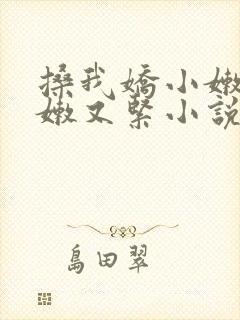 搡我嬌小嫩
嫩又緊小說
島田翠